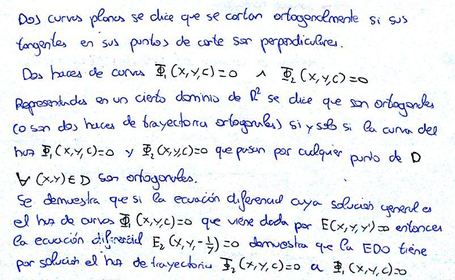 Dos curvas planas se dice que se cortan ortogonalmente si sus
tangentes en sus puntos de corte son perpendiculares.
Dos haces de curvas Φ₁(x,y,c)=0 ∧ Φ₂(x,y,c)=0
Representadas en un cierto dominio de ℝ² se dice que son ortogonales
(o son dos haces de trayectoria ortogonales) si y solo si la curva del
haz Φ₁(x,y,c)=0 y Φ₂(x,y,c)=0 que pasan por cualquier punto de D
∀ (x,y)∈D son ortogonales.
Se demuestra que si la ecuación diferencial cuya solución general es
el haz de curvas Φ₁(x,y,c)=0 que viene dada por E(x,y,y')=0 entonces
la ecuación diferencial E₂(x,y,-1/y')=0 demuestra que la EDO tiene
por solución el haz de trayectoria Φ₂(x,y,c)=0 a Φ₁(x,y,c)=0